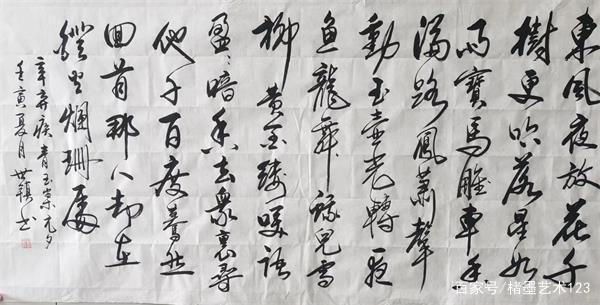 東風夜放花千
樹更吹落星如
雨寶馬雕車香
滿路鳳蕭聲
動玉壺光轉一夜
魚龍舞蛾兒雪
柳黃金縷笑語
盈、暗香去衆裏尋
他千百度驀然
回首那人却在
燈火爛珊處
辛弃疾青玉案元夕
壬寅夏月世鎮书
百家号/楮墨艺术123